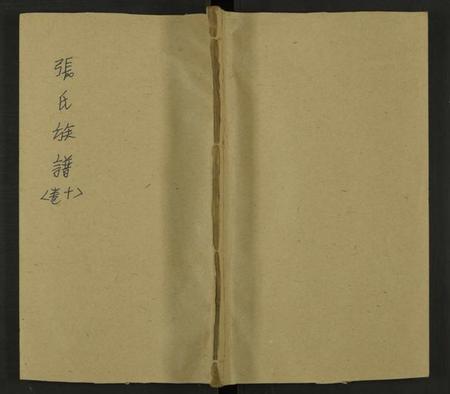 張氏族譜
<卷十>